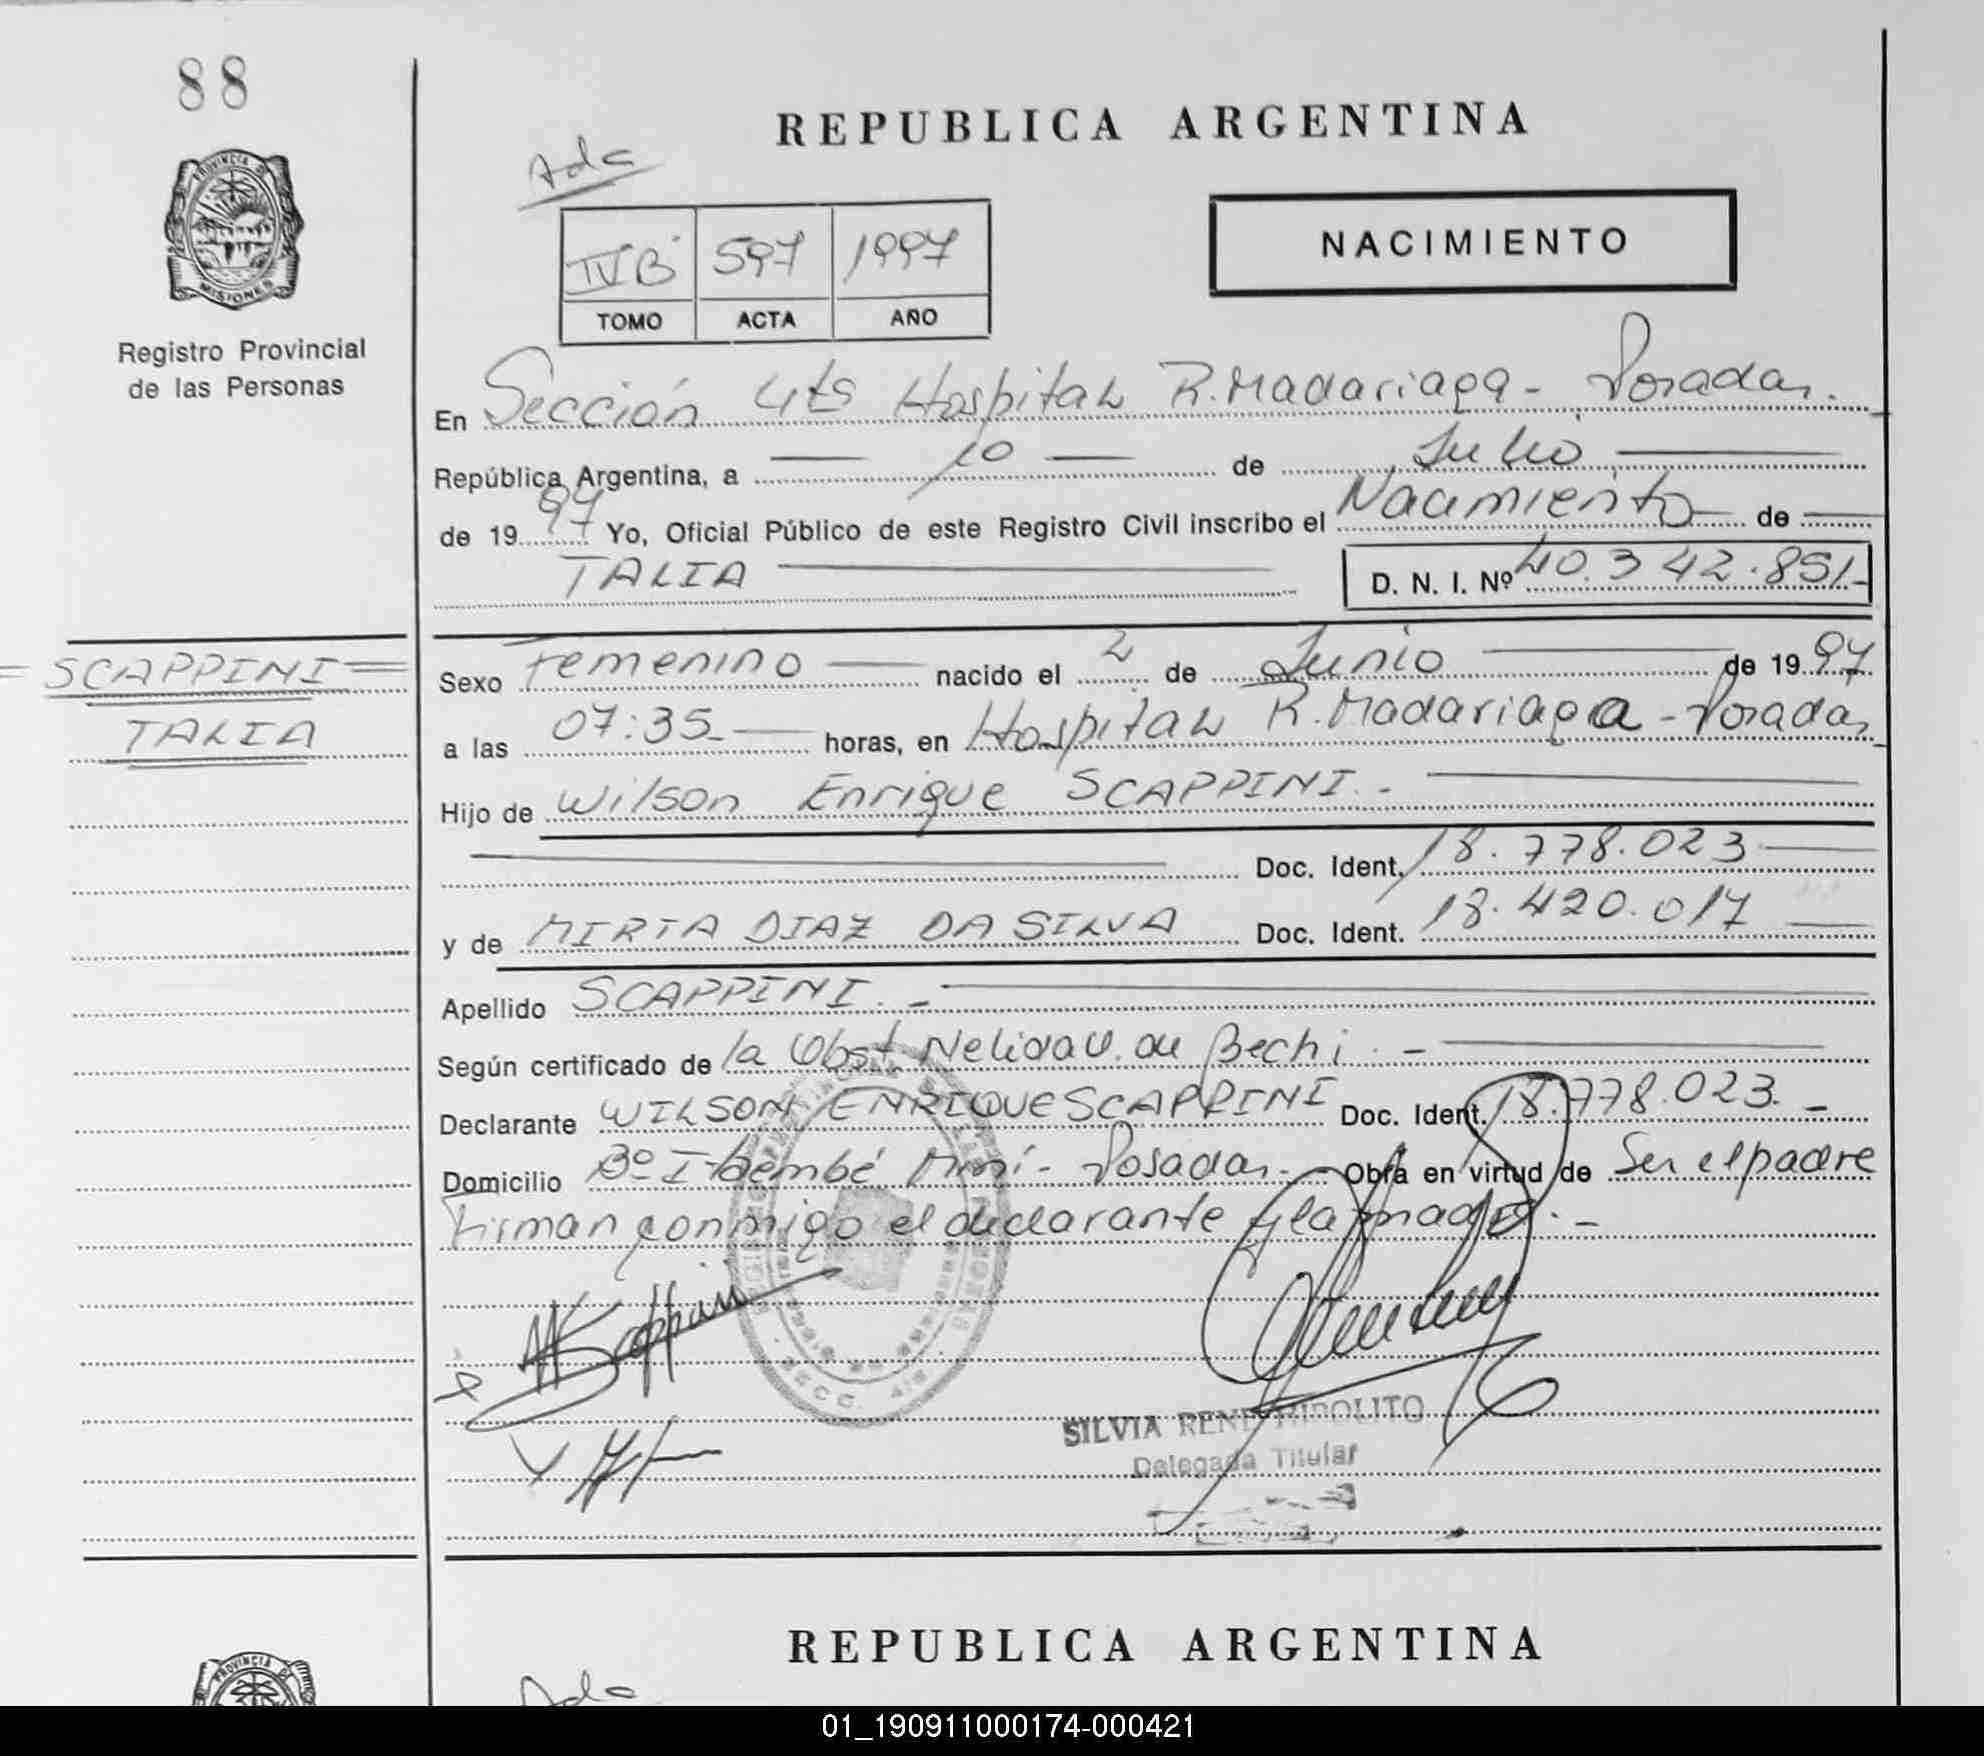 88
REPUBLICA ARGENTINA
Ada
PROVINCIA DE
MISIONES
Registro Provincial
de las Personas
IVB 597 1997
TOMO ACTA AÑO
NACIMIENTO
En Sección 4ta Hospital R. Madariaga - Posadas.
República Argentina, a 10 de Julio
de 19 97 Yo, Oficial Público de este Registro Civil inscribo el Nacimiento de
TALIA D. N. I. Nº 40.342.851
SCAPPINI
TALIA
Sexo Femenino nacido el 2 de Junio de 19 97
a las 07:35 horas, en Hospital R. Madariaga - Posadas
Hijo de Wilson Enrique SCAPPINI.-
Doc. Ident. 18.778.023
y de MIRTA DIAZ DA SILVA Doc. Ident. 18.420.017
Apellido SCAPPINI.-
Según certificado de la Obst. Nelida V. de Bechi.-
Declarante WILSON ENRIQUE SCAPPINI Doc. Ident. 18.778.023.-
Domicilio Bº Itaembé Miní - Posadas.- Obra en virtud de Ser el padre
Firman conmigo el declarante y la madre.-
SILVIA RENE HIPOLITO
Delegada Titular
REPUBLICA ARGENTINA
PROVINCIA DE
Ada
01_190911000174-000421